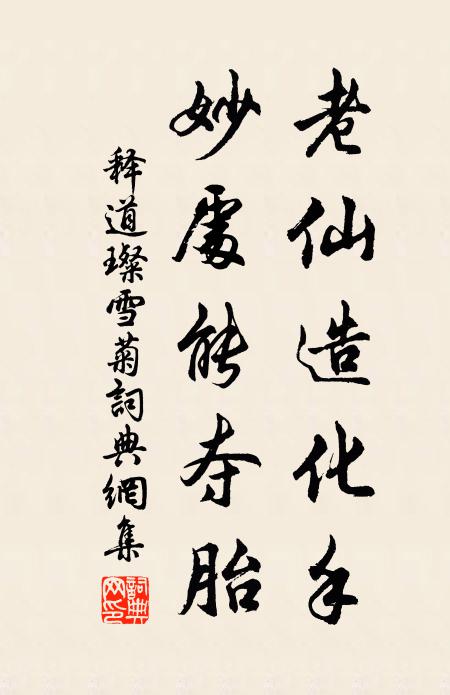 老仙造化手
妙處能夺胎
释道璨雪菊詞典網集
詞典網印